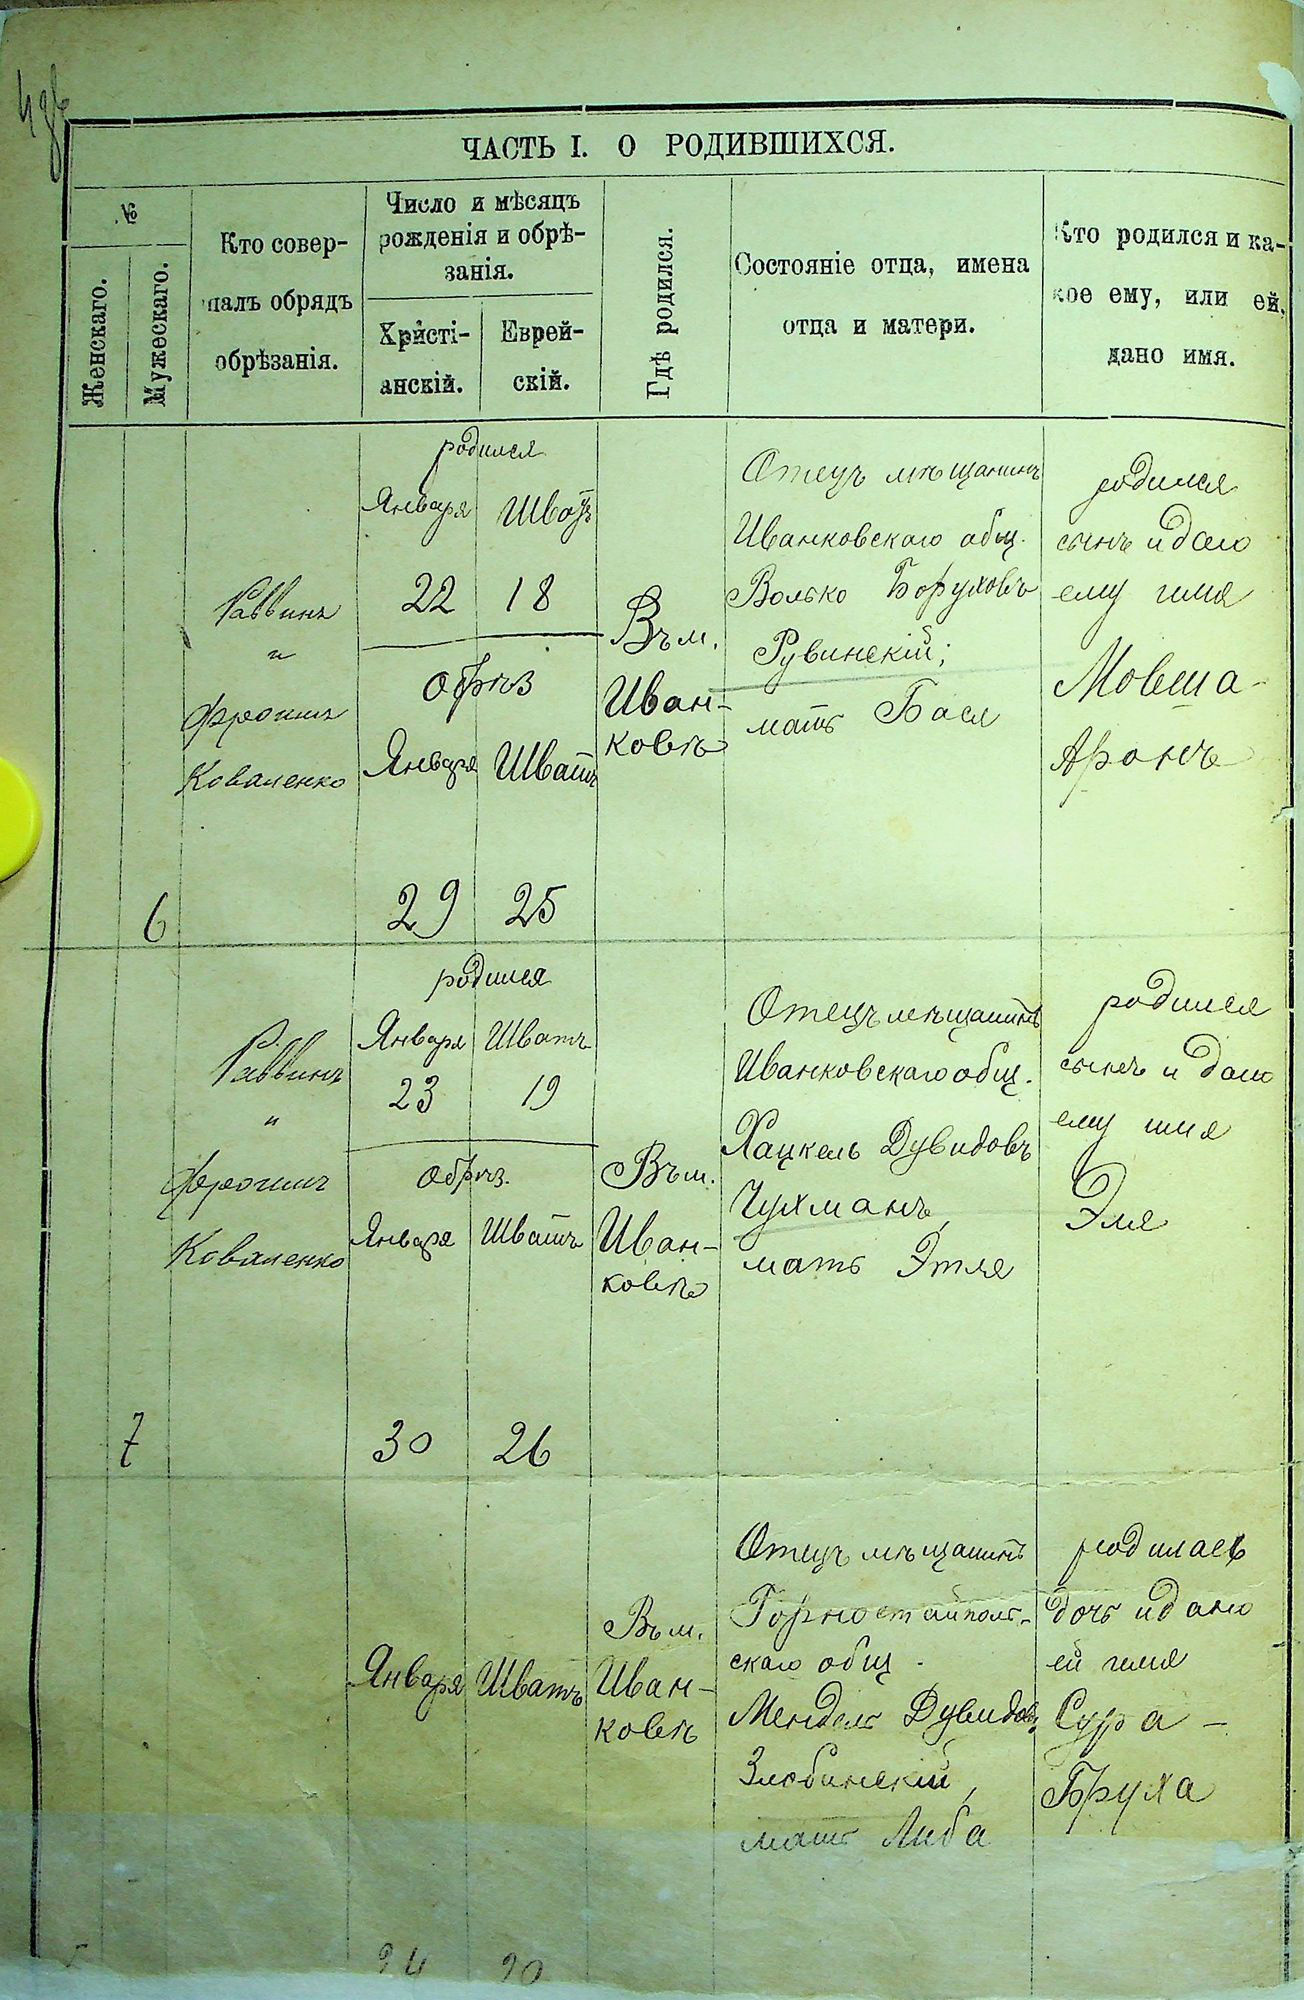 ЧАСТЬ I. О РОДИВШИХСЯ.
№
Женскаго.
Мужескаго.
Кто совер-
шалъ обрядъ
обрѣзанія.
Число и мѣсяцъ
рожденія и обрѣ-
занія.
Христі-
анскій.
Еврей-
скій.
Гдѣ родился.
Состояніе отца, имена
отца и матери.
Кто родился и ка-
кое ему, или ей,
дано имя.
6
Раввинъ
и
Фроимъ
Коваленко
родился
Января Шватъ
22 18
Обрѣз
Января Шватъ
29 25
Въ м.
Иван-
ковѣ
Отецъ мѣщанинъ
Иванковскаго общ.
Волько Боруховъ
Рувинскій;
мать Бася
родился
сынъ и дано
ему имя
Мовша-
Аронъ
7
Раввинъ
"
Фроимъ
Коваленко
родился
Января Шватъ
23 19
Обрѣз.
Января Шватъ
30 26
Въ м.
Иван-
ковѣ
Отецъ мѣщанинъ
Иванковскаго общ.
Хацкель Дувидовъ
Чухманъ,
мать Этля
родился
сынъ и дано
ему имя
Эля
Января Шватъ
24 20
Въ м.
Иван-
ковѣ
Отецъ мѣщанинъ
Горностайполь-
скаго общ.
Мендель Дувидовъ
Злобинскій,
мать Либа
родилась
дочь и дано
ей имя
Сура-
Бруха